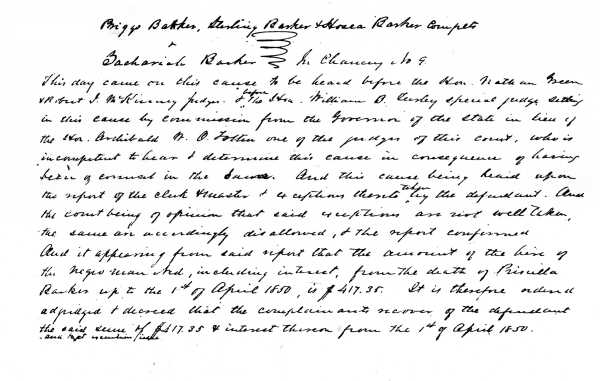 Briggs Barker, Sterling Barker & Hosea Barker Compts
v
Zachariah Barker } In Chancery No 9
This day came on this cause to be heard before the Hon. Nathan Green
& Robert J. McKinney judges & before The Hon. William B. Turley special judge, sitting
in this cause by commission from the Governor of the State in lieu of
the Hon. Archibald W. O. Totten one of the judges of this court, who is
incompetent to hear & determine this cause in consequence of having
been of counsel in the same. And this cause being heard upon
the report of the clerk & master & exceptions thereto taken by the defendant. And
the court being of opinion that said exceptions are not well taken,
the same are accordingly disallowed, & the report confirmed
And it appearing from said report that the amount of the hire of
the negro man Ned, including interest, from the death of Priscilla
Barker up to the 1st of April 1850, is $417.35. It is therefore ordered
adjudged & decreed that the complainants recover of the defendant
the said sum of $417.35 & interest thereon from the 1st of April 1850.
and that execution issue